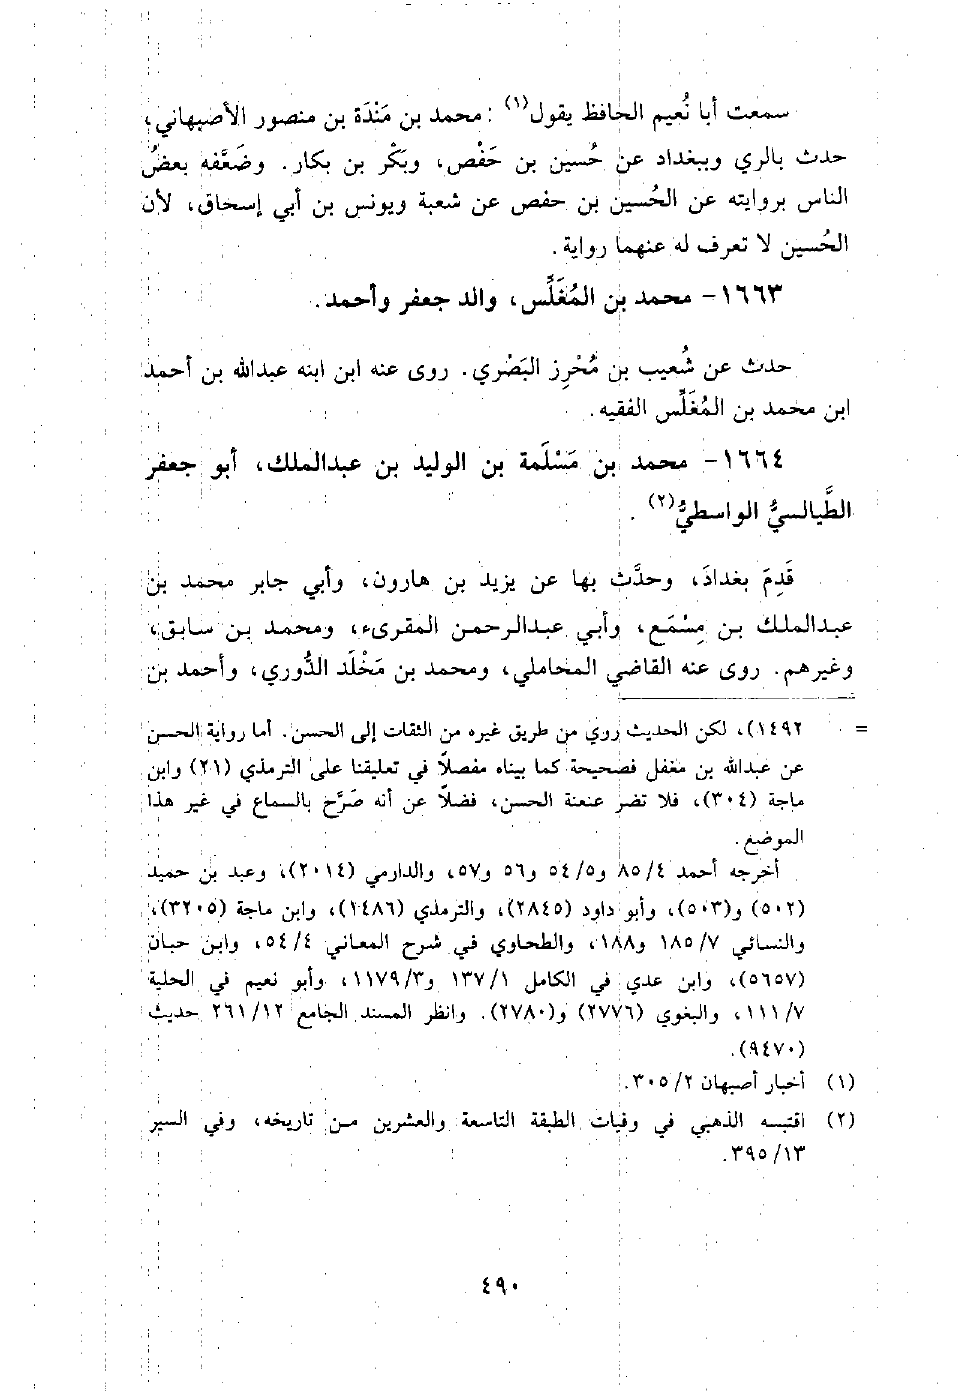 سمعت أبا نُعيم الحافظ يقول(١): محمد بن مَنْدَة بن منصور الأصبهاني،
حدث بالري وببغداد عن حُسين بن حَفْص، وبَكْر بن بكار. وضَعَّفه بعضُ
الناس بروايته عن الحُسين بن حفص عن شعبة ويونس بن أبي إسحاق، لأن
الحُسين لا تعرف له عنهما رواية.
١٦٦٣- محمد بن المُغَلِّس، والد جعفر وأحمد.
حدث عن شُعيب بن مُحْرِز البَصْري. روى عنه ابن ابنه عبدالله بن أحمد
ابن محمد بن المُغَلِّس الفقيه.
١٦٦٤- محمد بن مَسْلَمة بن الوليد بن عبدالملك، أبو جعفر
الطَّيالسيُّ الواسطيُّ(٢).
قَدِمَ بغدادَ، وحدَّث بها عن يزيد بن هارون، وأبي جابر محمد بن
عبدالملك بن مِسْمَع، وأبي عبدالرحمن المقرىء، ومحمد بن سابق،
وغيرهم. روى عنه القاضي المحاملي، ومحمد بن مَخْلَد الدُّوري، وأحمد بن
= ١٤٩٢)، لكن الحديث روي من طريق غيره من الثقات إلى الحسن. أما رواية الحسن
عن عبدالله بن مغفل فصحيحة كما بيناه مفصلًا في تعليقنا على الترمذي (٢١) وابن
ماجة (٣٠٤)، فلا تضر عنعنة الحسن، فضلًا عن أنه صَرَّح بالسماع في غير هذا
الموضع.
أخرجه أحمد ٤/ ٨٥ و٥/ ٥٤ و٥٦ و٥٧، والدارمي (٢٠١٤)، وعبد بن حميد
(٥٠٢) و(٥٠٣)، وأبو داود (٢٨٤٥)، والترمذي (١٤٨٦)، وابن ماجة (٣٢٠٥)،
والنسائي ٧/ ١٨٥ و١٨٨، والطحاوي في شرح المعاني ٤/ ٥٤، وابن حبان
(٥٦٥٧)، وابن عدي في الكامل ١/ ١٣٧ و٣/ ١١٧٩، وأبو نعيم في الحلية
٧/ ١١١، والبغوي (٢٧٧٦) و(٢٧٨٠). وانظر المسند الجامع ١٢/ ٢٦١ حديث
(٩٤٧٠).
(١) أخبار أصبهان ٢/ ٣٠٥.
(٢) اقتبسه الذهبي في وفيات الطبقة التاسعة والعشرين من تاريخه، وفي السير
١٣/ ٣٩٥.
٤٩٠